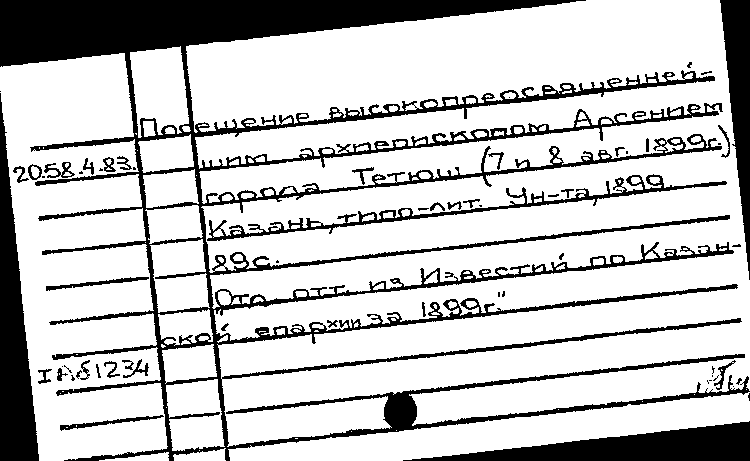 Посещение высокопреосвященней-
20.58.4.83. шим архиепископом Арсением
города Тетюш (7 и 8 авг. 1899г.)
Казань, типо-лит. Ун-та, 1899.
29с.
"Отд. отт. из Известий по Казан-
ской епархии за 1899г."
IАб1234